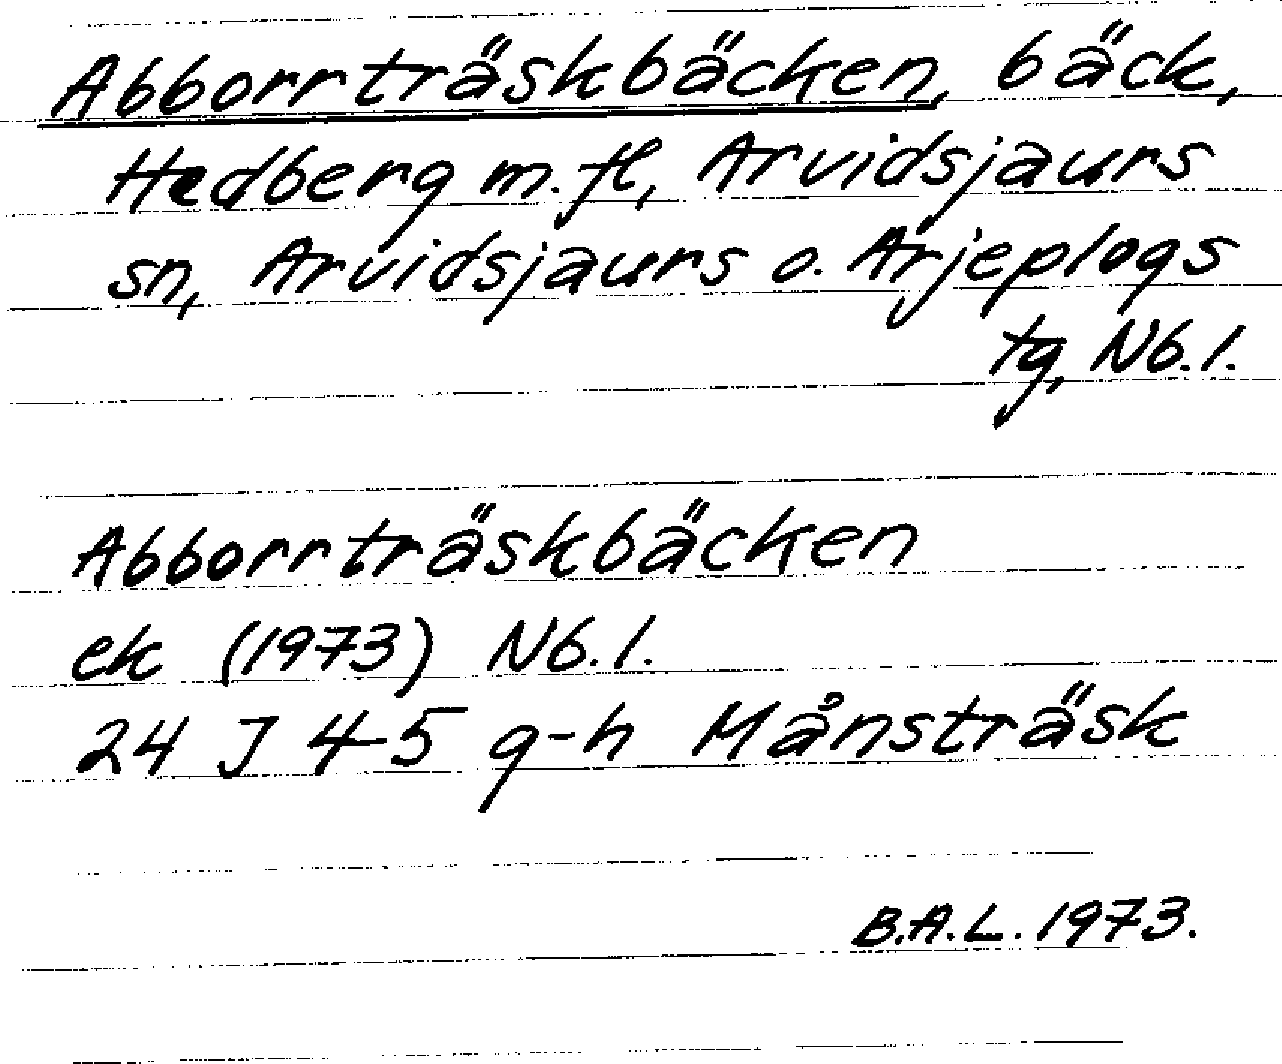 Abborrträskbäcken, bäck,
Hedberg m. fl, Arvidsjaurs
sn, Arvidsjaurs o. Arjeplogs
tg, Nb. l.
Abborrträskbäcken
ek (1973) Nb. l.
24 J 4-5 g-h Månsträsk
B.A.L. 1973.